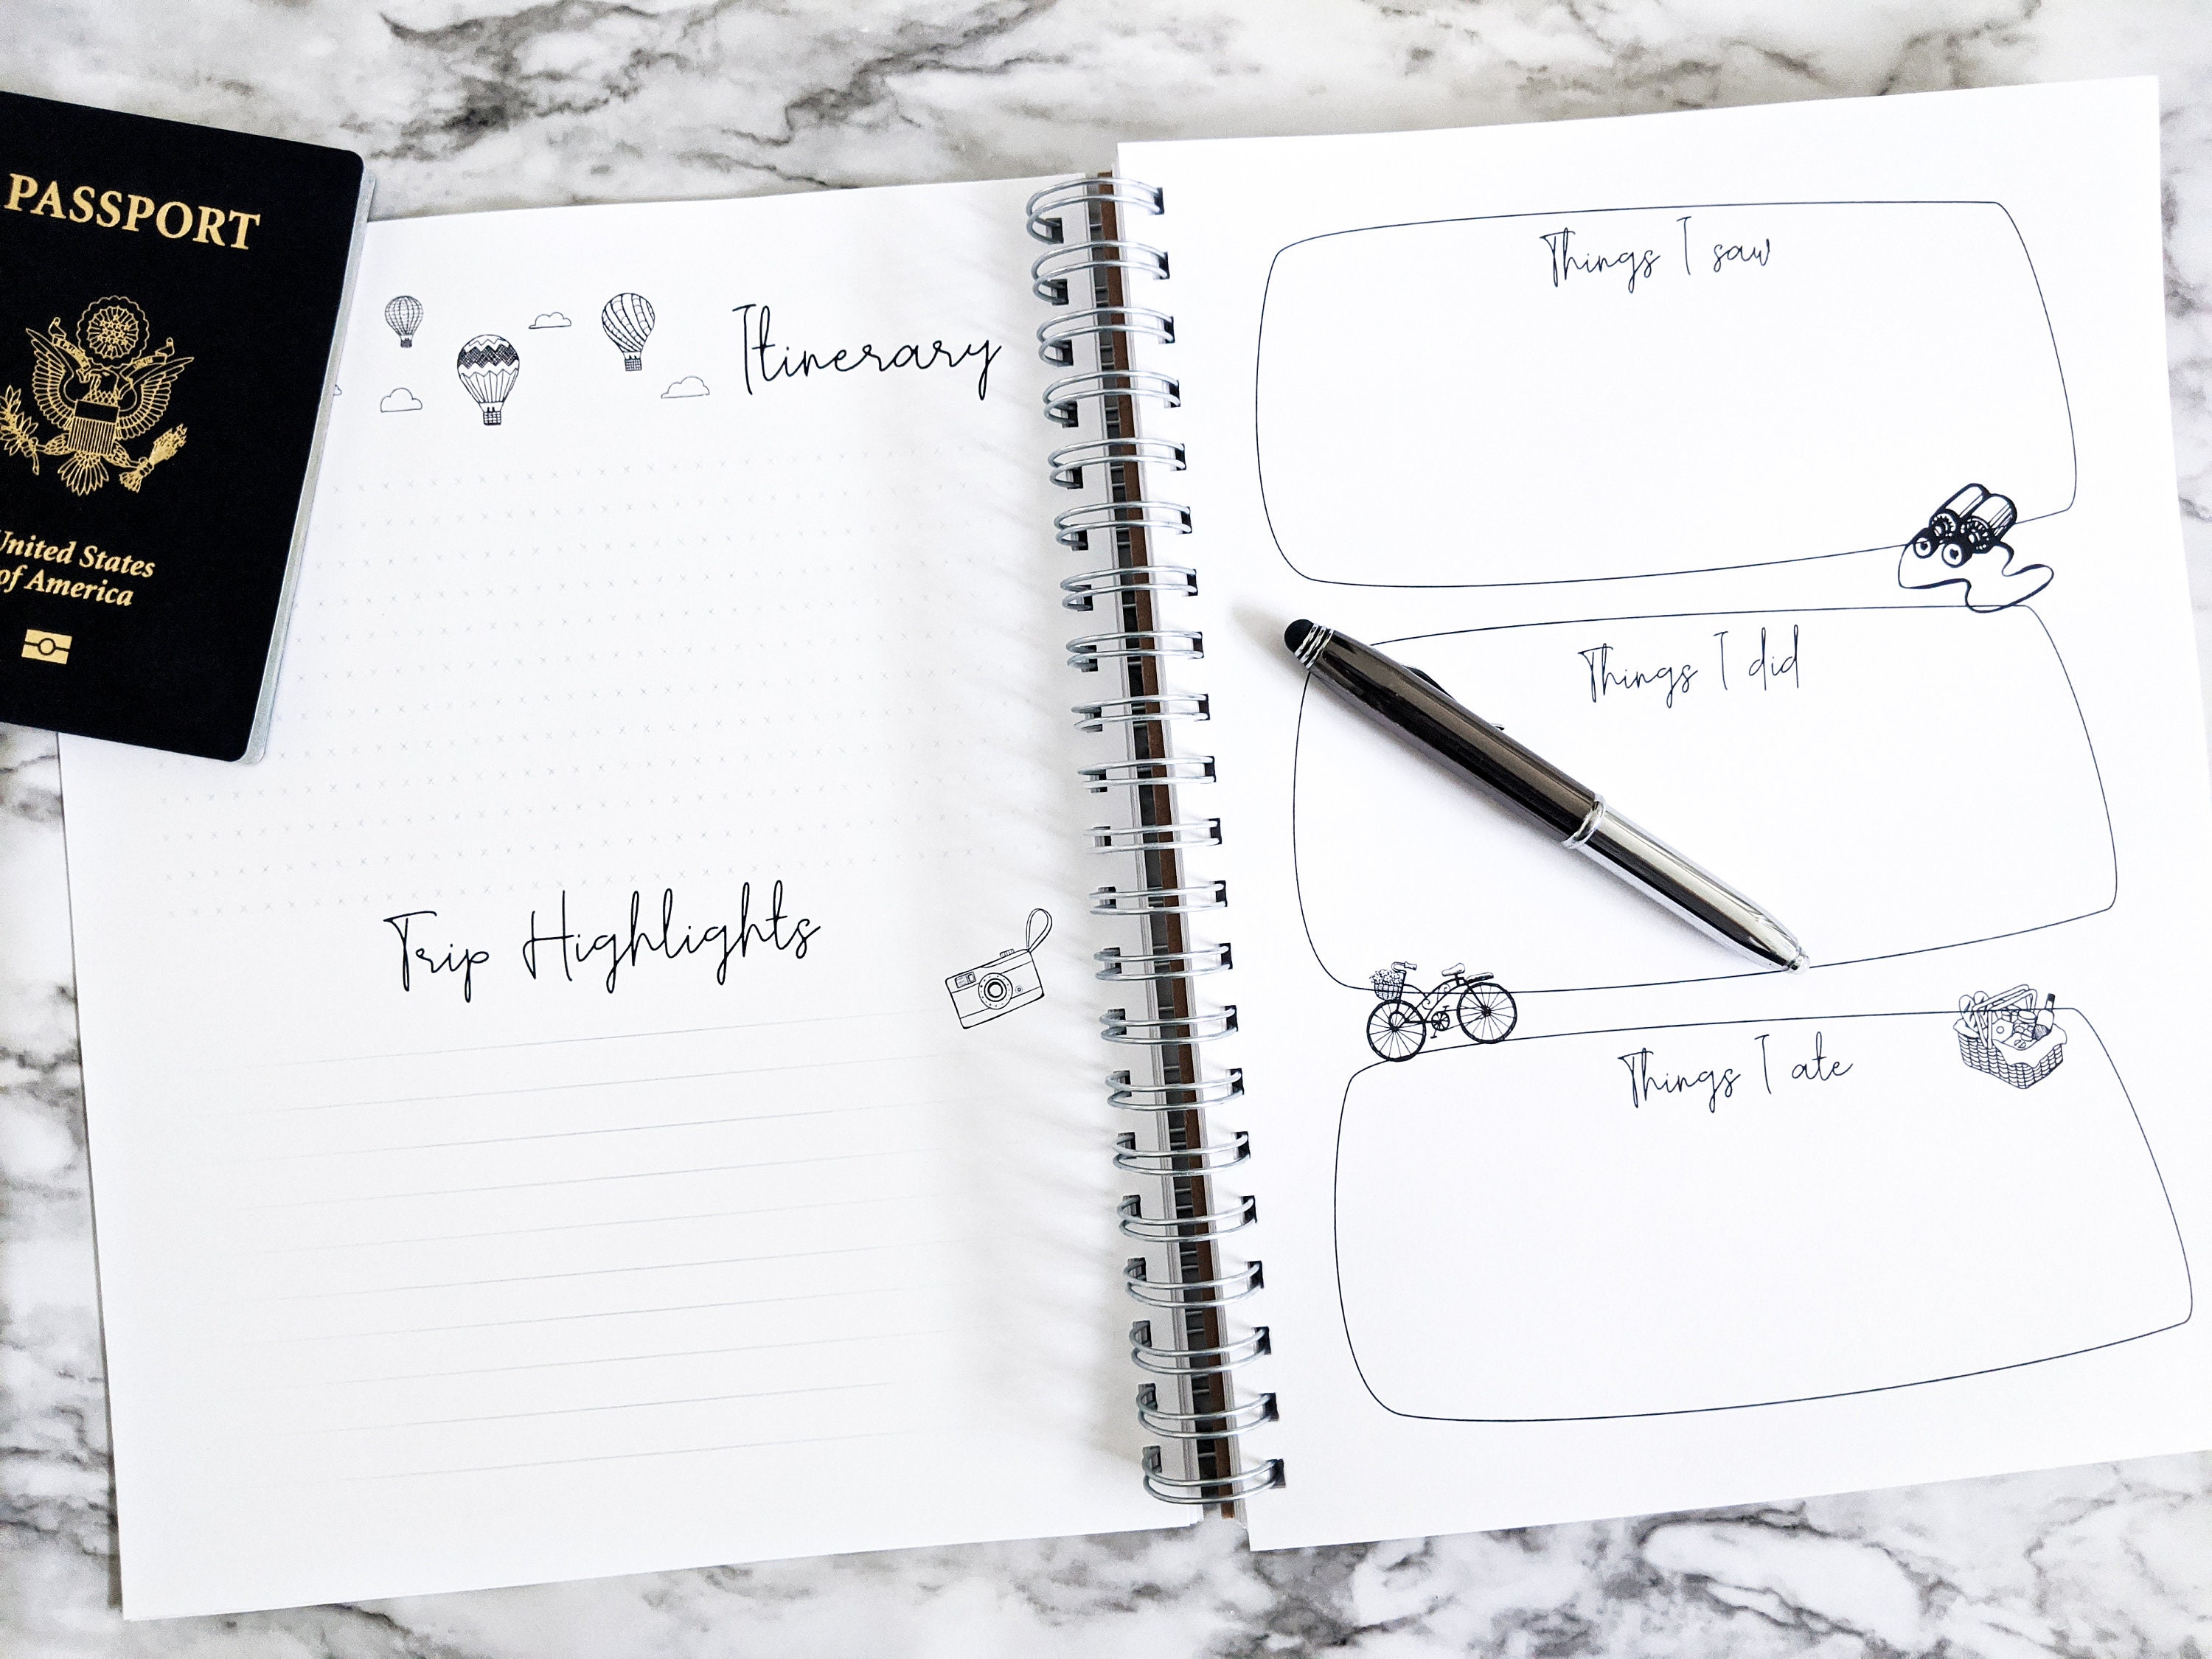 PASSPORT
United States
of America
Itinerary
Trip Highlights
Things I saw
Things I did
Things I ate